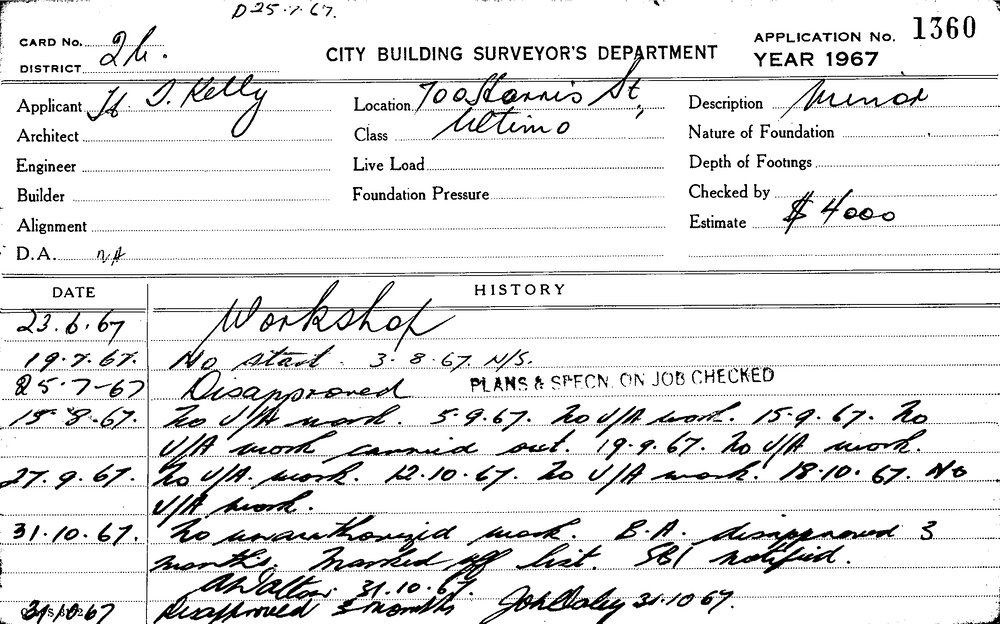 D 25.7.67.
CARD No. 26.
DISTRICT
CITY BUILDING SURVEYOR'S DEPARTMENT
APPLICATION No. 1360
YEAR 1967
Applicant H J. Kelly
Location 700 Harris St,
Description Minor
Architect
Class Ultimo
Nature of Foundation
Engineer
Live Load
Depth of Footings
Builder
Foundation Pressure
Checked by
Alignment
Estimate $ 4000
D.A. n/A
DATE HISTORY
23.6.67 Workshop
19.7.67. No start. 3.8.67. N/S.
25.7-67 Disapproved PLANS & SPECN. ON JOB CHECKED
15.8.67. No U/A work. 5.9.67. No U/A work. 15.9.67. No
U/A work carried out. 19.9.67. No U/A work.
27.9.67. No U/A. work. 12.10.67. No U/A work. 18.10.67. No
U/A work.
31.10.67. No unauthorized work. B.A. disapproved 3
months. Marked off list. SBI notified.
31.10.67.
31/10/67 Disapproved 3 months John Daley 31.10.67.